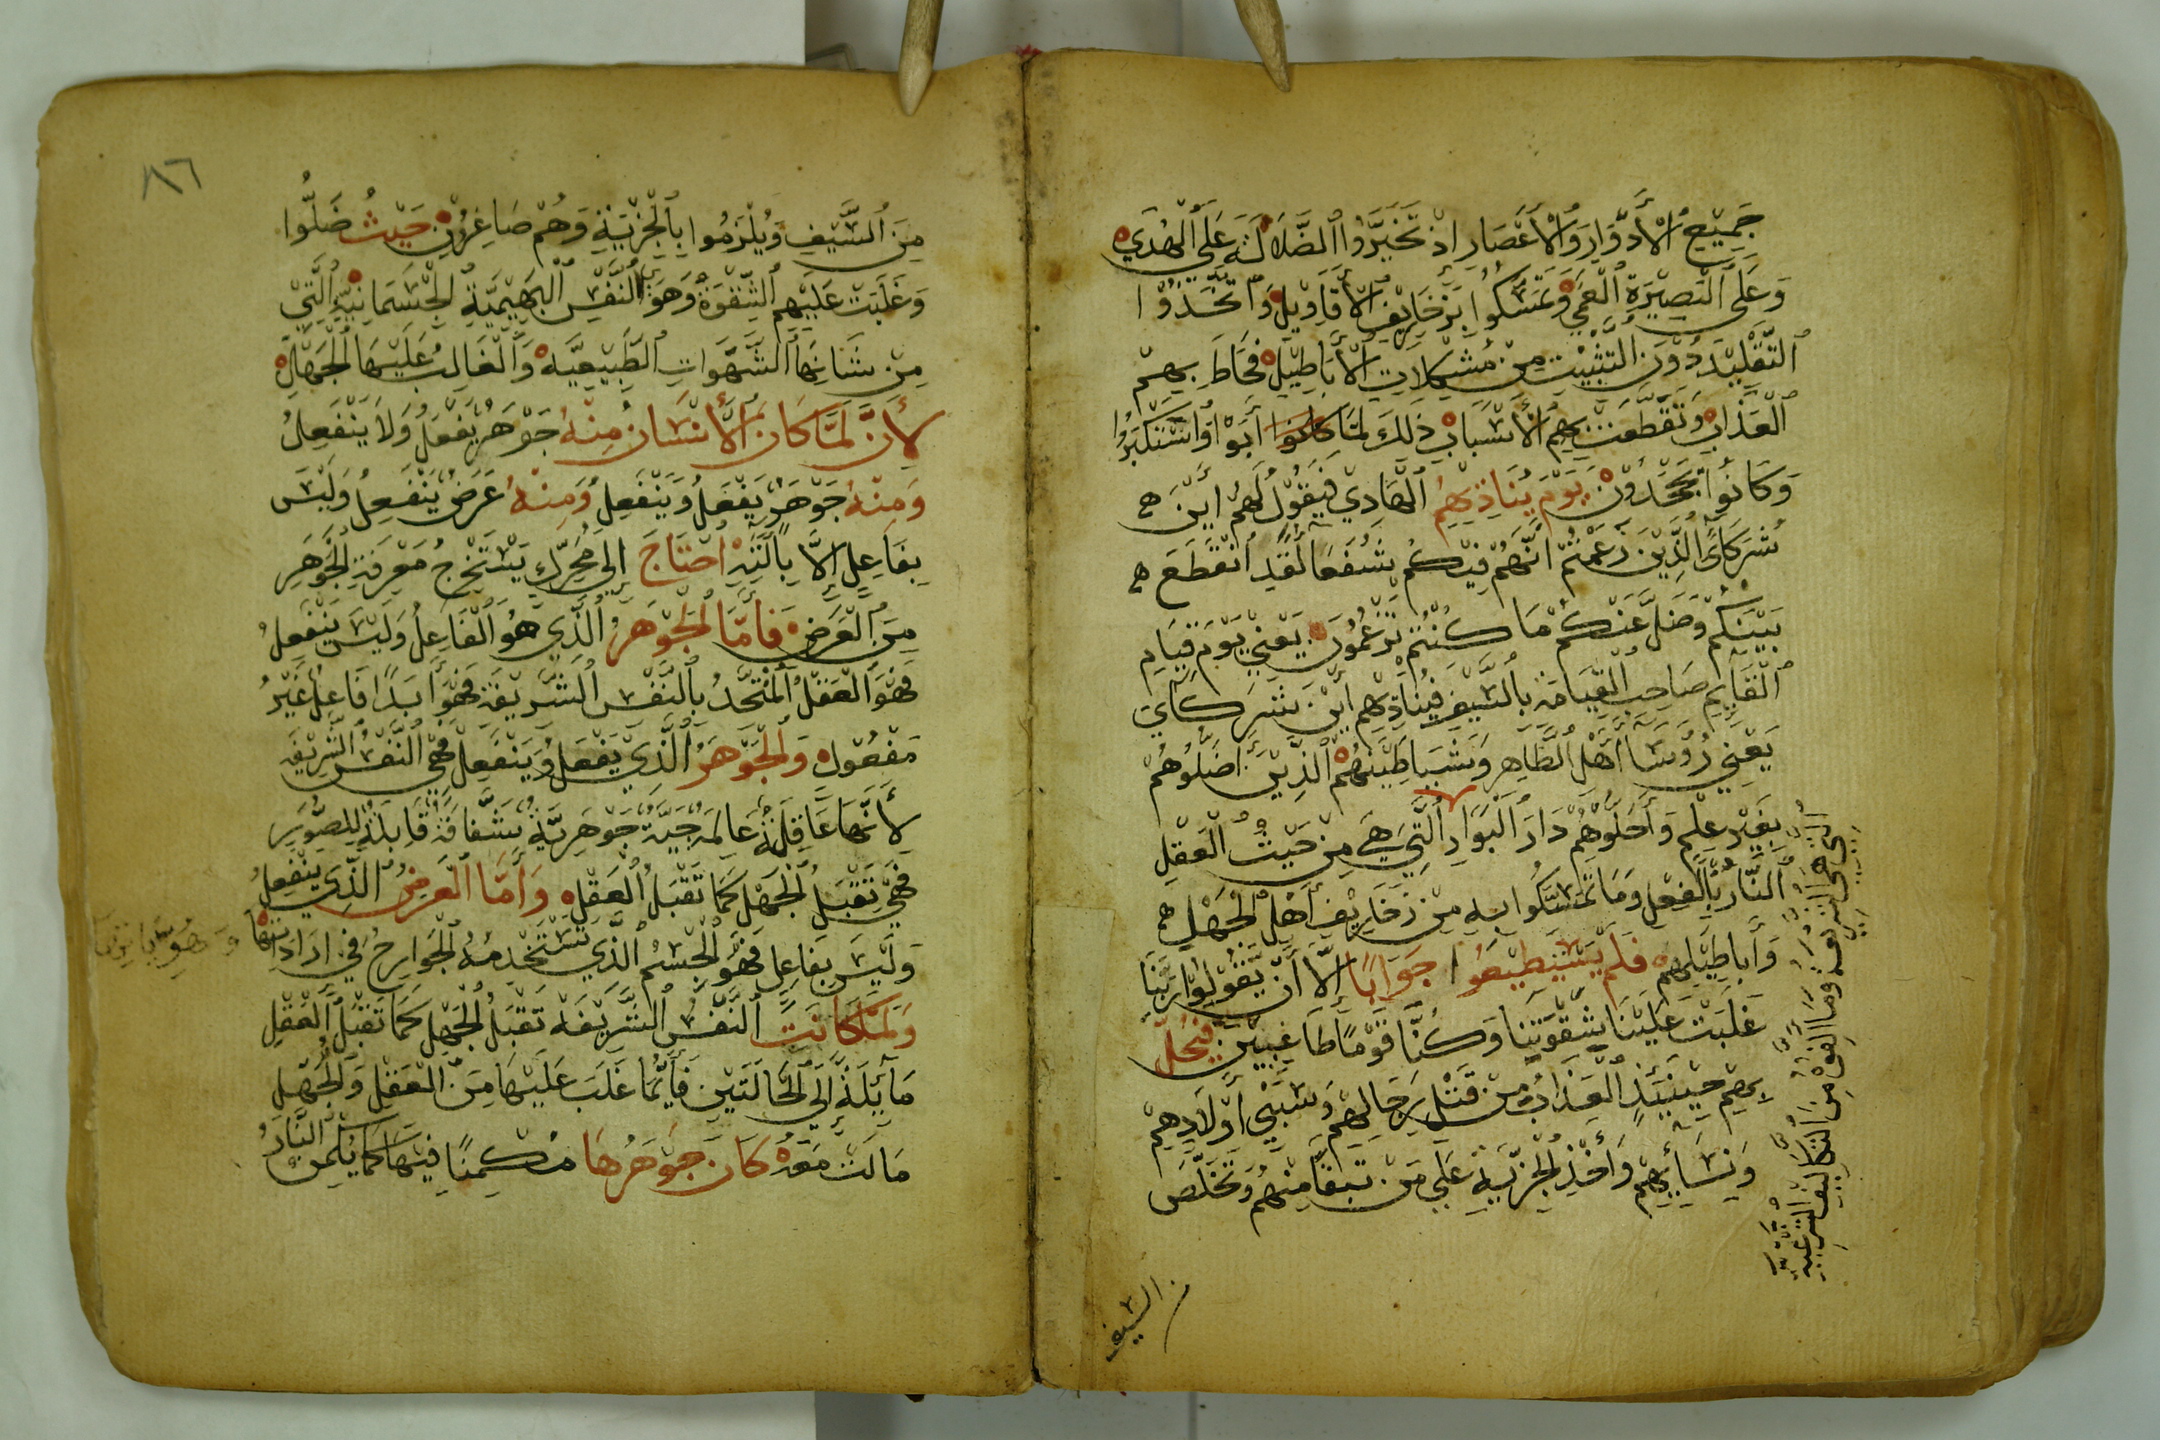 جَمِيْعِ الْأَدْوَارِ وَالْأَعْصَارِ اِذْ تَخَيَّرُوا الضَّلَالَةَ عَلَى الْهُدَي
وَعَلَى الْبَصِيْرَةِ الْعَمَي وَتَمَسَّكُوا بِزَخَارِيْفِ الْأَقَاوِيْلِ وَاتَّخَذُوْا
التَّقْلِيْدَ دُوْنَ التَّثْبِيْتِ مِنْ مُشْكِلَاتِ الْأَبَاطِيْلِ فَحَاطَ بِهِمْ
الْعَذَابُ وَتَقَطَّعَتْ بِهِمُ الْأَسْبَابُ ذٰلِكَ لَمَّا كَانُوْا أَبَوْا وَاسْتَكْبَرُوْا
وَكَانُوْا يَجْحَدُوْنَ يَوْمَ يُنَادِيْهِمُ الْهَادِي فَيَقُوْلُ لَهُمْ أَيْنَ
شُرَكَائِيَ الَّذِيْنَ زَعَمْتُمْ أَنَّهُمْ فِيْكُمْ شُفَعَا لَقَدِ انْقَطَعَ
بَيْنَكُمْ وَضَلَّ عَنْكُمْ مَا كُنْتُمْ تَزْعُمُوْنَ يَعْنِيْ يَوْمَ قِيَامِ
الْقَايِمِ صَاحِبِ الْقِيَامَةِ بِالسَّيْفِ فَيُنَادِيْهِمْ أَيْنَ شُرَكَآئِيَ
يَعْنِي رُؤَسَآ أَهْلِ الظَّاهِرِ وَشَيَاطِيْنَهُمْ الَّذِيْنَ أَضَلُّوْهُمْ
بِغَيْرِ عِلْمٍ وَأَحَلُّوْهُمْ دَارَ الْبَوَارِ الَّتِيْ هِيَ مِنْ حَيْثُ الْعَقْلِ
النَّارُ بِالْفِعْلِ وَمَا تَمَسَّكُوا بِهِ مِنْ زَخَارِيْفِ أَهْلِ الْجَهْلِ
وَأَبَاطِيْلِهِمْ فَلَمْ يَسْتَطِيْعُوْا جَوَابًا إِلَّا أَنْ يَقُوْلُوْا رَبَّنَا
غَلَبَتْ عَلَيْنَا شِقْوَتُنَا وَكُنَّا قَوْمًا طَاغِيْنَ فَيَحُلُّ
بِهِمْ حِيْنَئِذٍ الْعَذَابُ مِنْ قَتْلِ رِجَالِهِمْ وَسَبْيِ أَوْلَادِهِمْ
وَنِسَآئِهِمْ وَأَخْذِ الْجِزْيَةِ عَلَي مَنْ تَبَقَّا مِنْهُمْ وَتَخَلَّصَ
من السيف
الَّتِيْ هِيَ الشَّرِيْعَةُ وَمَا الْفَوْهُ مِنَ التَّكَالِيْفِ الشَّرْعِيَّةِ
٨٦
مِنَ السَّيْفِ وَيُلْزَمُوا بِالْجِزْيَةِ وَهُمْ صَاغِرُوْنَ حَيْثُ ضَلُّوا
وَغَلَبَتْ عَلَيْهِمِ الشِّقْوَةُ وَهُوَ النَّفْسُ الْبَهِيْمِيَّةُ الْجُسْمَانِيَّةُ الَّتِيْ
مِنْ شَانِهَا الشَّهَوَاتِ الطَّبِيْعِيَّه وَالْغَالِبُ عَلَيْهَا الْجَهْلُ
لِأَنَّ لَمَّا كَانَ الْأِنْسَانُ مِنْهُ جَوْهَرٌ يَفْعَلُ وَلَا يَنْفَعِلُ
وَمِنْهُ جَوْهَرٌ يَفْعَلُ وَيَنْفَعِلُ وَمِنْهُ عَرَضٌ يَنْفَعِلُ وَلَيْسَ
بِفَاعِلٍ إِلَّا بِاٰلَتِهْ احْتَاجَ إِلَي مُحَرِّكٍ يَسْتَخْرِجُ مَعْرِفَةِ الْجَوْهَرِ
مِنَ الْعَرَضِ فَأَمَّا الْجَوْهَرُ الَّذِي هُوَ الْفَاعِلُ وَلَيْسَ يَنْفَعِلُ
فَهُوَ الْعَقْلُ الْمُتَّحِدُ بِالنَّفْسِ الشَّرِيْفَةِ فَهُوَ أَبَدًا فَاعِلٌ غَيْرُ
مَفْعُوْلٍ وَالْجَوْهَرُ الَّذِيْ يَفْعَلُ وَيَنْفَعِلُ فَهِيَ النَّفْسُ الشَّرِيْفَةِ
لِأَنَّهَا عَاقِلَةٌ عَالِمَةٌ حَيَّةٌ جَوْهَرِيَّةٌ شَفَّافَةٌ قَابِلَةٌ لِلصُّوَرِ
فَهِيَ تَقْبَلُ الْجَهْلَ كَمَا تَقْبَلُ الْعَقْلَ وَأَمَّا الْعَرَضُ الَّذِي يَنْفَعِلُ
وَلَيْسَ بِفَاعِلٍ فَهُوَ الْجِسْمُ الَّذِي تَسْتَخْدِمُهُ الْجَوَارِحُ فِي اِرَادَاتِهَا
وَلَمَّا كَانَتِ النَّفْسُ الشَّرِيْفَة تَقْبَلُ الْجَهْلَ كَمَا تَقْبَلُ الْعَقْلَ
مَآئِلَةً إِلَي الْحَالَتَيْنِ فَأَيُّمَا غَلَبَ عَلَيْهَا مِنَ الْعَقْلِ وَالْجَهْلِ
مَالَتْ مَعَهُ كَانَ جَوْهَرُهَا مُكْمِنًا فِيْهَا كَمَا يَكْمِنُ النَّارُ